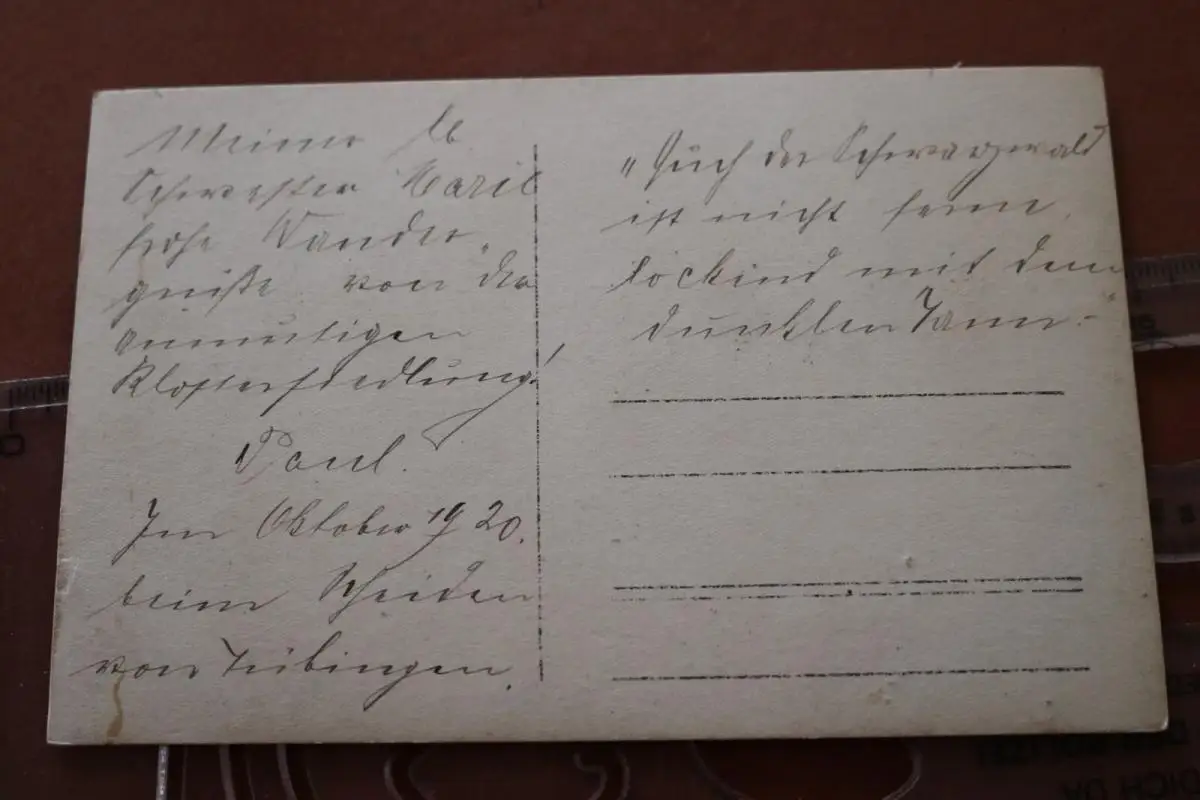 Meiner lb
Schwester Marie
frohe Wander-
grüße von der
anmutigen
Klostersiedlung!
Paul.
Im Oktober 1920.
beim Scheiden
von Tübingen.
"Auch der Schwarzwald
ist nicht ferne,
lockend mit den
dunklen Tann-"